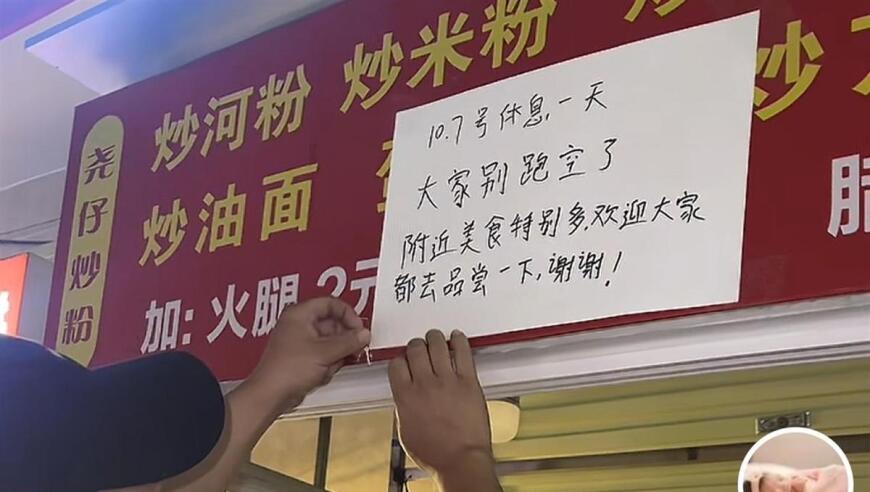 尧仔炒粉
炒河粉 炒米粉 炒
炒油面
加: 火腿 2元
10.7号休息一天
大家别跑空了
附近美食特别多,欢迎大家
都去品尝一下,谢谢!
炒